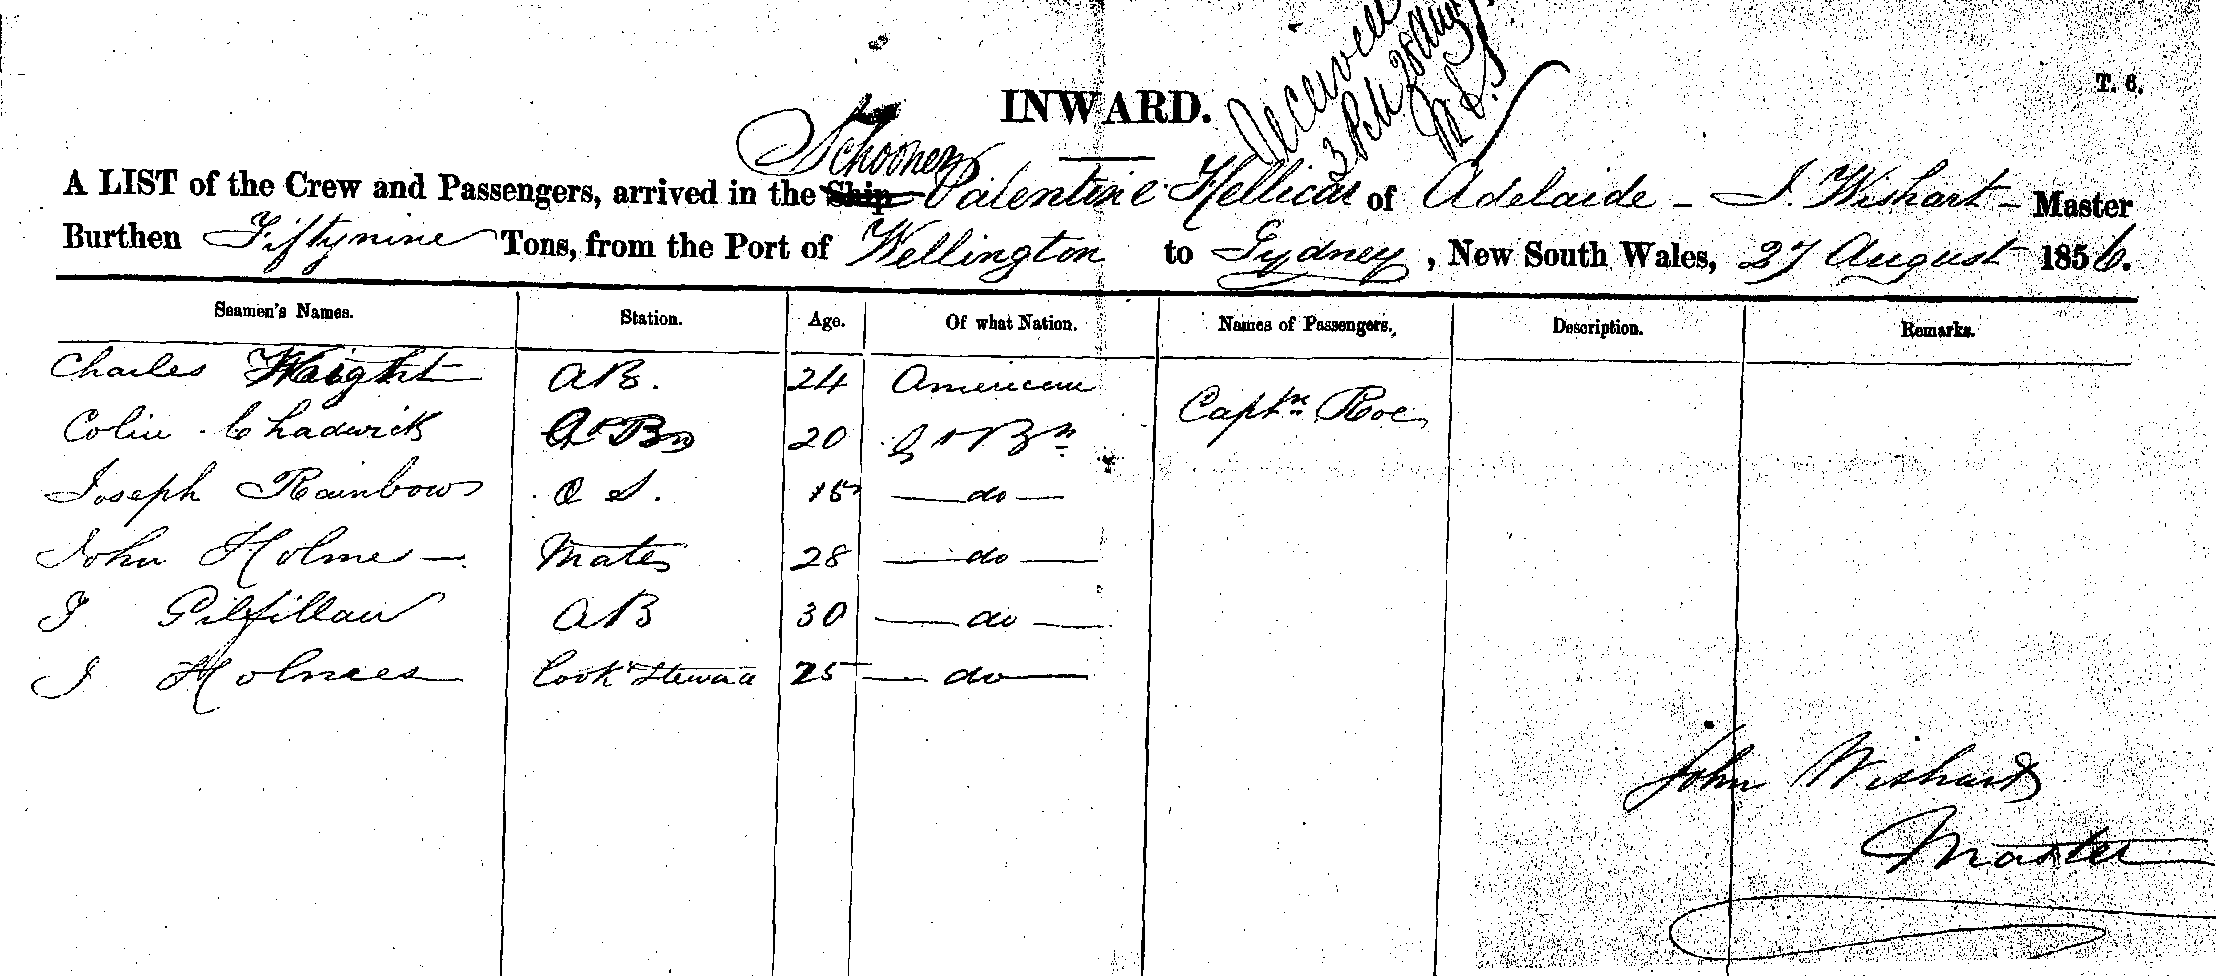 Received
3 PM 28 Aug
INWARD.
T. 6.
Schooner
A LIST of the Crew and Passengers, arrived in the Ship Valentine Hellicar of Adelaide - J. Wishart - Master
Burthen Fiftynine Tons, from the Port of Wellington to Sydney, New South Wales, 27 August 1856.
Seamen's Names. Station. Age. Of what Nation. Names of Passengers. Description. Remarks.
Charles Wright AB. 24 American Captn Roe
Colin Chadwick 20 Gt Bn
Joseph Rainbow O S. 15 do
John Holmes Mate 28 do
J Gilfillan AB 30 do
J Holmes Cook Steward 25 do
John Wishart
Master